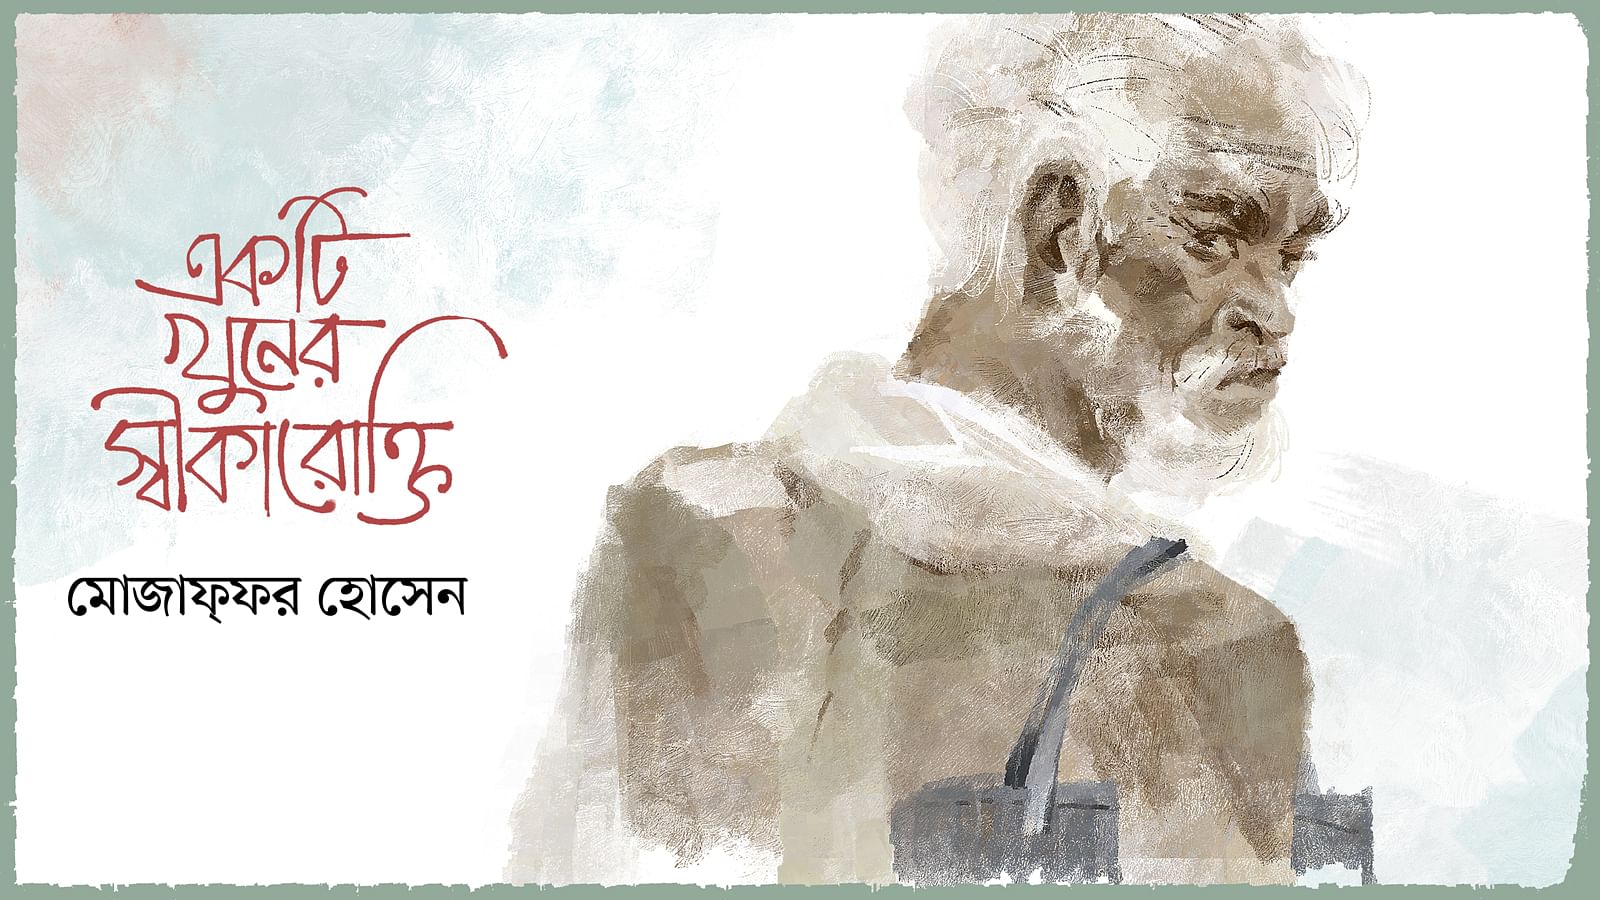 একটি
খুনের
স্বীকারোক্তি
মোজাফ্‌ফর হোসেন